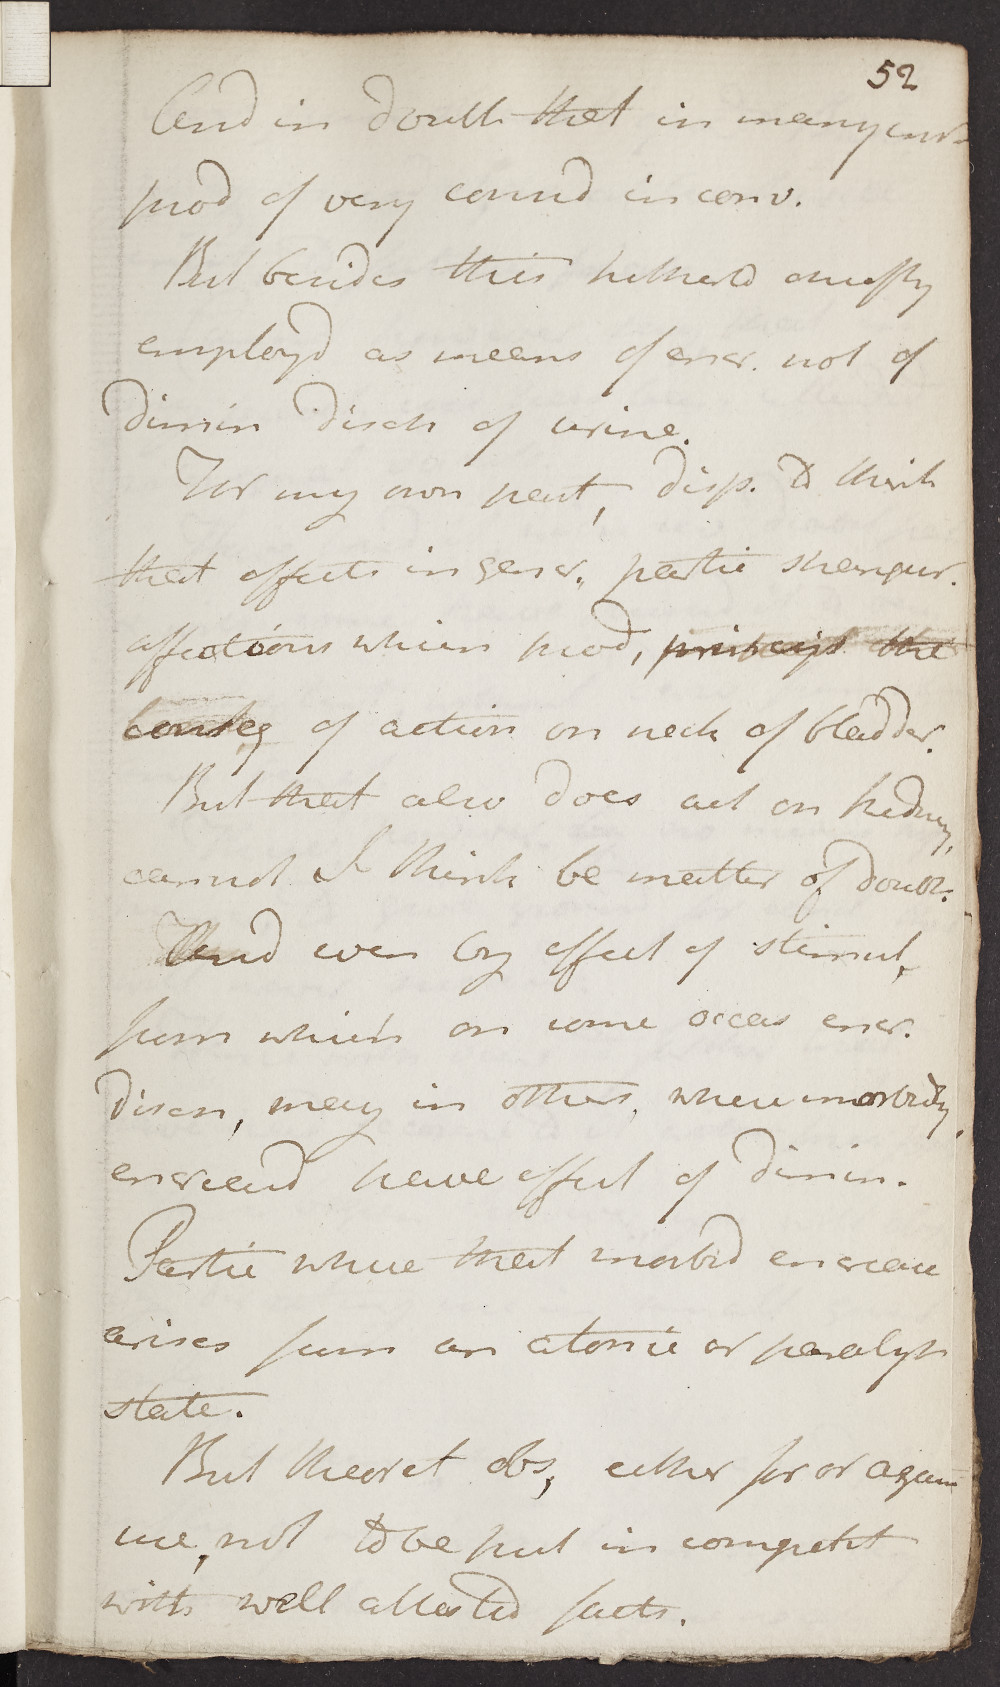 52
And in doubt that in many cur
prod of very consid inconv.
But besides this hitherto chiefly
employd as means of encr. not of
dimin disch of urine.
For my own part, disp. to think
that effects in gener., partic strangur.
affections which prod, princip the
conseq of action on neck of bladder.
But that also does act on kidney,
cannot I think be matter of doubt.
And even by effect of stimul,
from which on some occas encr.
disch, may in others, where morbidly
encreasd have effect of dimin.
Partic where that morbid encrease
arises from an atonic or paralyt
state.
But theoret obs, either for or again
use, not to be put in competit
with well attested facts.